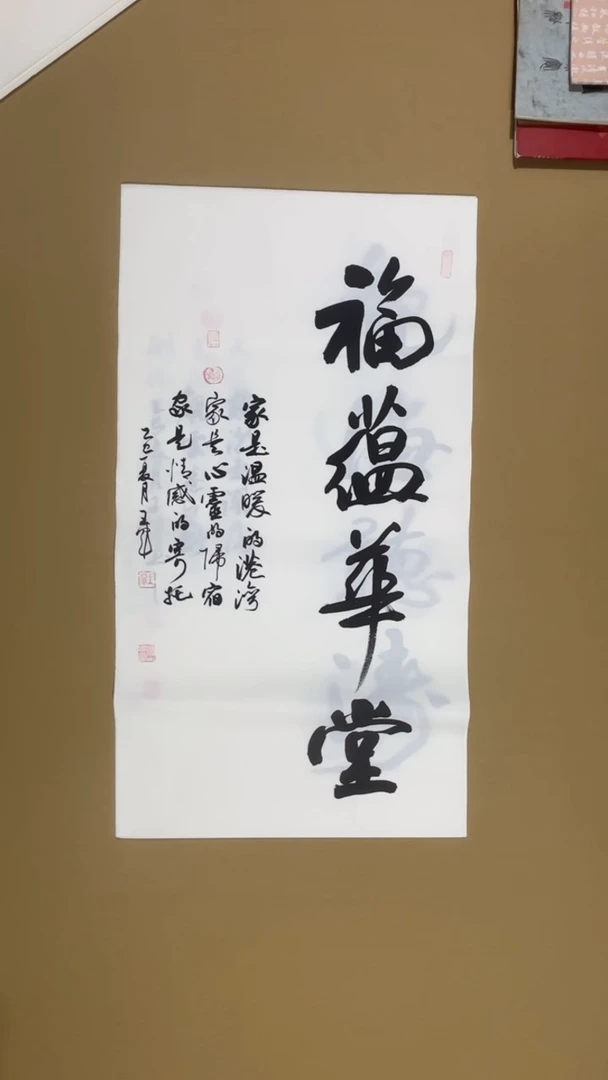 福蕴華堂
家是温暖的港湾
家是心靈的歸宿
家是情感的寄托
乙巳夏月